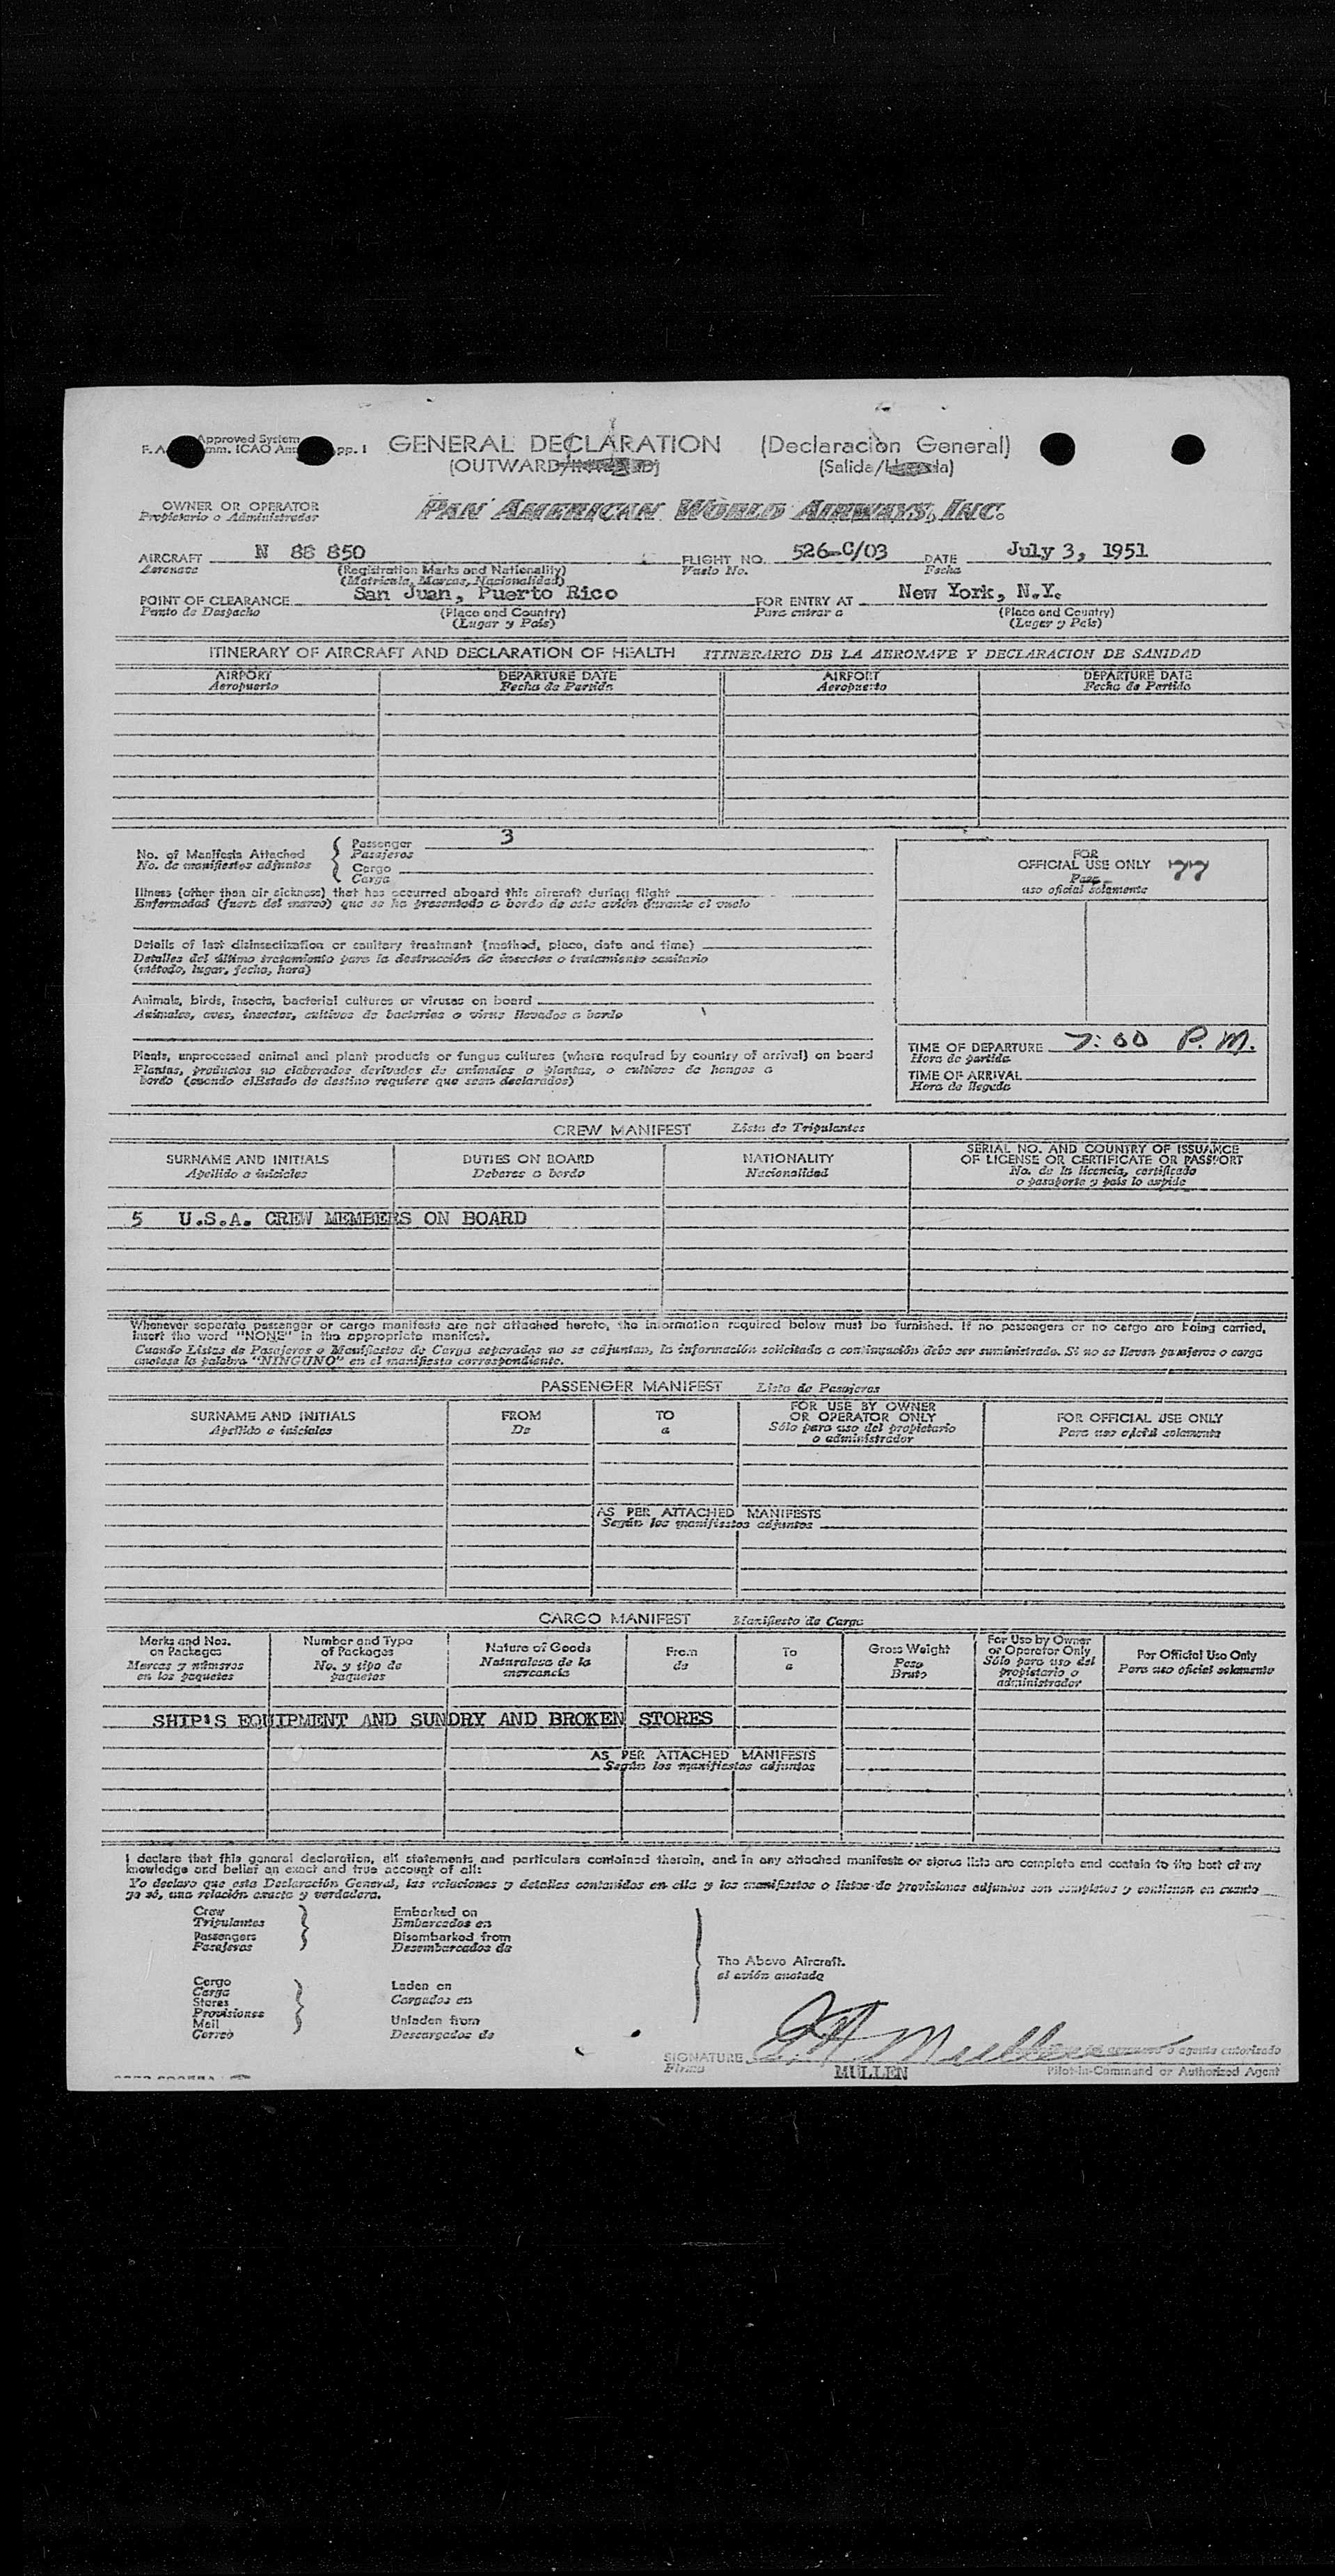 Approved System
F. A mm. ICAO Ann pp. 1
GENERAL DECLARATION (Declaracion General)
(OUTWARD/ (Salida/
OWNER OR OPERATOR
Propietario o Administrador
PAN AMERICAN WORLD AIRWAYS, INC.
AIRCRAFT N 88 850 FLIGHT NO. 526-C/03 DATE July 3, 1951
Aeronave (Registration Marks and Nationality) Vuelo No. Fecha
(Matricula, Marcas, Nacionalidad)
POINT OF CLEARANCE San Juan, Puerto Rico FOR ENTRY AT New York, N.Y.
Punto de Despacho (Place and Country) Para entrar a (Place and Country)
(Lugar y País) (Lugar y País)
ITINERARY OF AIRCRAFT AND DECLARATION OF HEALTH ITINERARIO DE LA AERONAVE Y DECLARACION DE SANIDAD
AIRPORT DEPARTURE DATE AIRPORT DEPARTURE DATE
Aeropuerto Fecha de Partida Aeropuerto Fecha de Partida
No. of Manifests Attached
No. de manifiestos adjuntos
Passenger 3
Pasajeros
Cargo
Carga
Illness (other than air sickness) that has occurred aboard this aircraft during flight
Enfermedad (fuera del mareo) que se ha presentado a bordo de este avión durante el vuelo
Details of last disinsectization or sanitary treatment (method, place, date and time)
Detalles del último tratamiento para la destrucción de insectos o tratamiento sanitario
(método, lugar, fecha, hora)
Animals, birds, insects, bacterial cultures or viruses on board
Animales, aves, insectos, cultivos de bacterias o virus llevados a bordo
Plants, unprocessed animal and plant products or fungus cultures (where required by country of arrival) on board
Plantas, productos no elaborados derivados de animales o plantas, o cultivos de hongos a
bordo (cuando elEstado de destino requiere que sean declarados)
FOR
OFFICIAL USE ONLY 77
Para
uso oficial solamente
TIME OF DEPARTURE 7:00 P.M.
Hora de partida
TIME OF ARRIVAL
Hora de llegada
CREW MANIFEST Lista de Tripulantes
SURNAME AND INITIALS DUTIES ON BOARD NATIONALITY SERIAL NO. AND COUNTRY OF ISSUANCE
OF LICENSE OR CERTIFICATE OR PASSPORT
Apellido e iniciales Deberes a bordo Nacionalidad No. de la licencia, certificado
o pasaporte y país lo expide
5 U.S.A. CREW MEMBERS ON BOARD
Whenever seperate passenger or cargo manifests are not attached hereto, the information required below must be furnished. If no passengers or no cargo are being carried,
insert the word "NONE" in the appropriate manifest.
Cuando Listas de Pasajeros o Manifiestos de Carga separados no se adjuntan, la información solicitada a continuación debe ser suministrada. Si no se llevan pasajeros o carga
anotese la palabra "NINGUNO" en el manifiesto correspondiente.
PASSENGER MANIFEST Lista de Pasajeros
SURNAME AND INITIALS FROM TO FOR USE BY OWNER
OR OPERATOR ONLY FOR OFFICIAL USE ONLY
Apellido e iniciales De a Sólo para uso del propietario
o administrador Para uso oficial solamente
AS PER ATTACHED MANIFESTS
Según los manifiestos adjuntos
CARGO MANIFEST Manifiesto de Carga
Marks and Nos.
on Packages
Marcas y números
en los paquetes
Number and Type
of Packages
No. y tipo de
paquetes
Nature of Goods
Naturaleza de la
mercancía
From
de
To
a
Gross Weight
Peso
Bruto
For Use by Owner
or Operator Only
Sólo para uso del
propietario o
administrador
For Official Use Only
Para uso oficial solamente
SHIP'S EQUIPMENT AND SUNDRY AND BROKEN STORES
AS PER ATTACHED MANIFESTS
Según los manifiestos adjuntos
I declare that this general declaration, all statements and particulars contained therein, and in any attached manifests or stores lists are complete and contain to the best of my
knowledge and belief an exact and true account of all:
Yo declaro que esta Declaración General, las relaciones y detalles contenidos en ella y los manifiestos o listas de provisiones adjuntos son completos y contienen en cuanto
yo sé, una relación exacta y verdadera.
Crew
Tripulantes
Passengers
Pasajeros
Embarked on
Embarcados en
Disembarked from
Desembarcados de
Cargo
Carga
Stores
Provisiones
Mail
Correo
Laden on
Cargados en
Unladen from
Descargados de
The Above Aircraft.
el avión anotado
SIGNATURE Mullen o agente autorizado
Firma MULLEN Pilot-in-Command or Authorized Agent